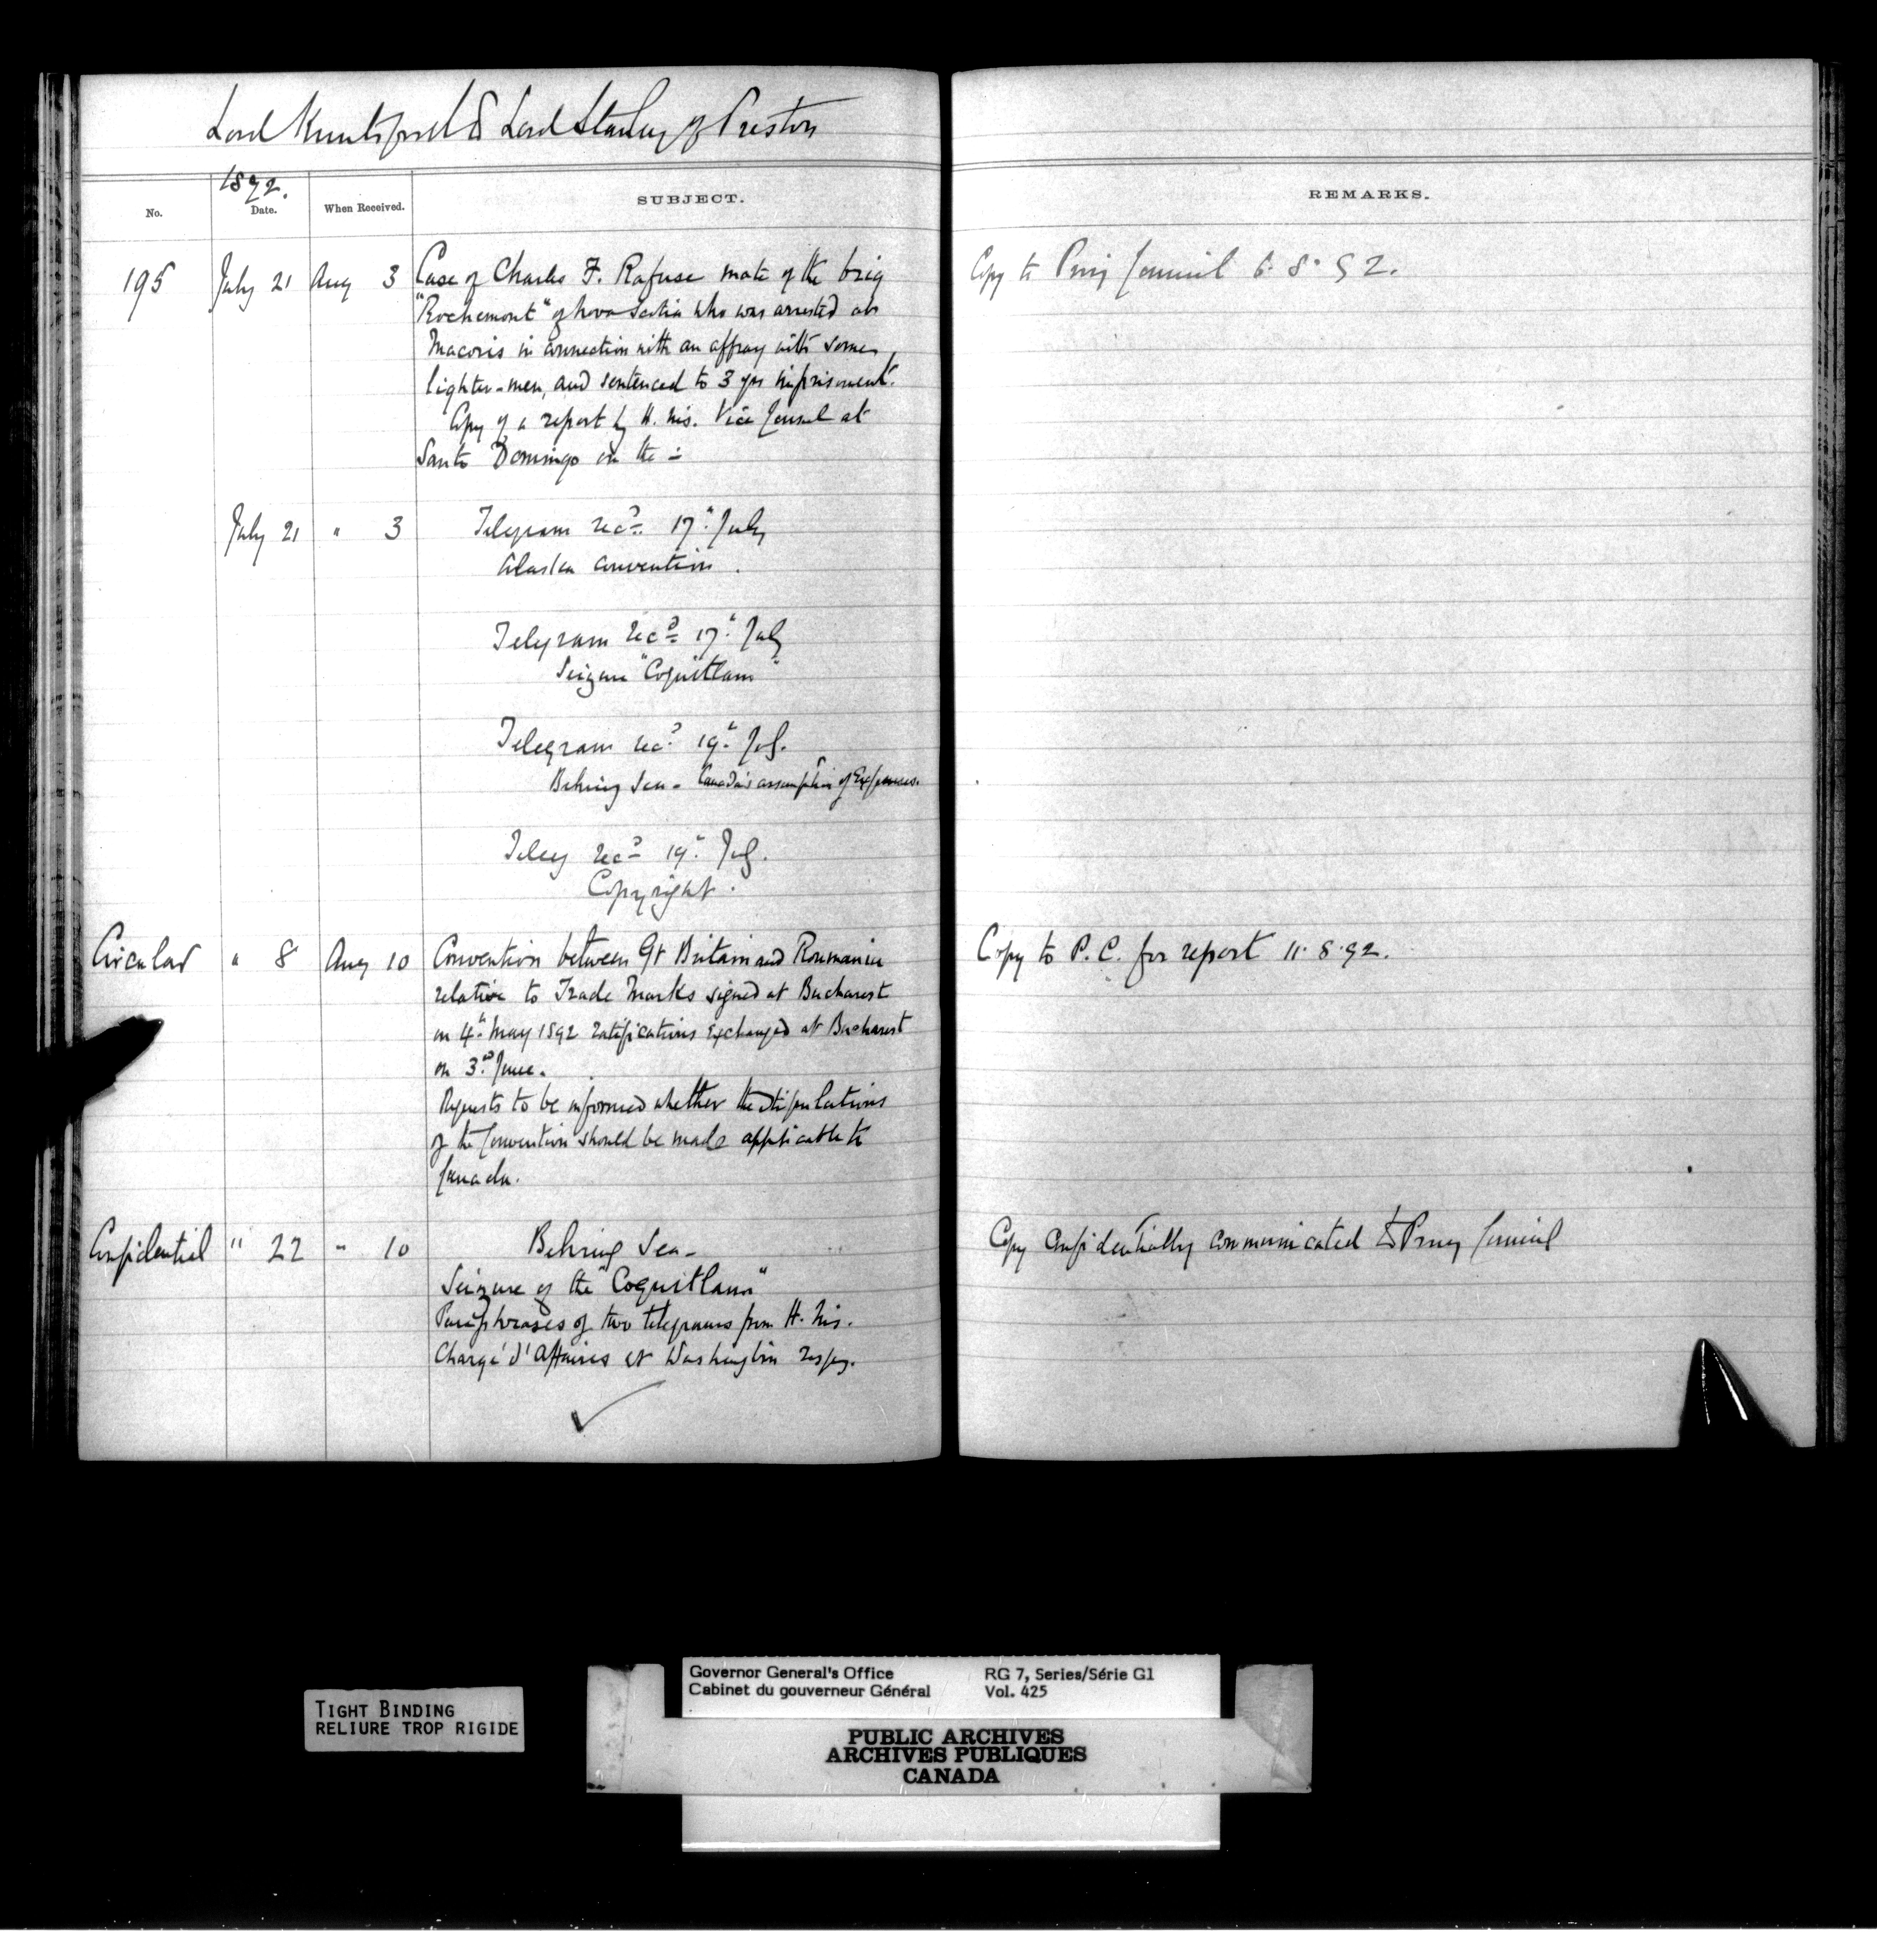 Lord Knutsford to Lord Stanley of Preston
1892.
No.
Date.
When Received.
SUBJECT.
REMARKS.
195 July 21 Aug 3 Case of Charles F. Rafuse mate of the brig
"Rochemont" of Nova Scotia who was arrested at
Macoris in connection with an affray with some
lighter-men, and sentenced to 3 yrs imprisonment.
Copy of a report by H. Ms. Vice Consul at
Santo Domingo on the -
Copy to Privy Council 6.8.92.
July 21 " 3 Telegram recd. 17th July
Alaska convention.
Telegram recd. 17th July
Seizure "Coquitlam"
Telegram recd. 19th Jy.
Behring Sea - Canada's assumption of Expenses.
Teleg recd. 19th Jy.
Copyright.
Circular " 8 Aug 10 Convention between Gt Britain and Roumania
relative to Trade Marks signed at Bucharest
on 4th May 1892 ratifications exchanged at Bucharest
on 3rd June.
Requests to be informed whether the stipulations
of the Convention should be made applicable to
Canada.
Copy to P.C. for report 11.8.92.
Confidential " 22 " 10 Behring Sea -
Seizure of the "Coquitlam"
Paraphrases of two telegrams from H. Ms.
Chargé d'Affaires at Washington respg.
Copy confidentially communicated to Privy Council
TIGHT BINDING
RELIURE TROP RIGIDE
Governor General's Office
Cabinet du gouverneur Général
RG 7, Series/Série G1
Vol. 425
PUBLIC ARCHIVES
ARCHIVES PUBLIQUES
CANADA